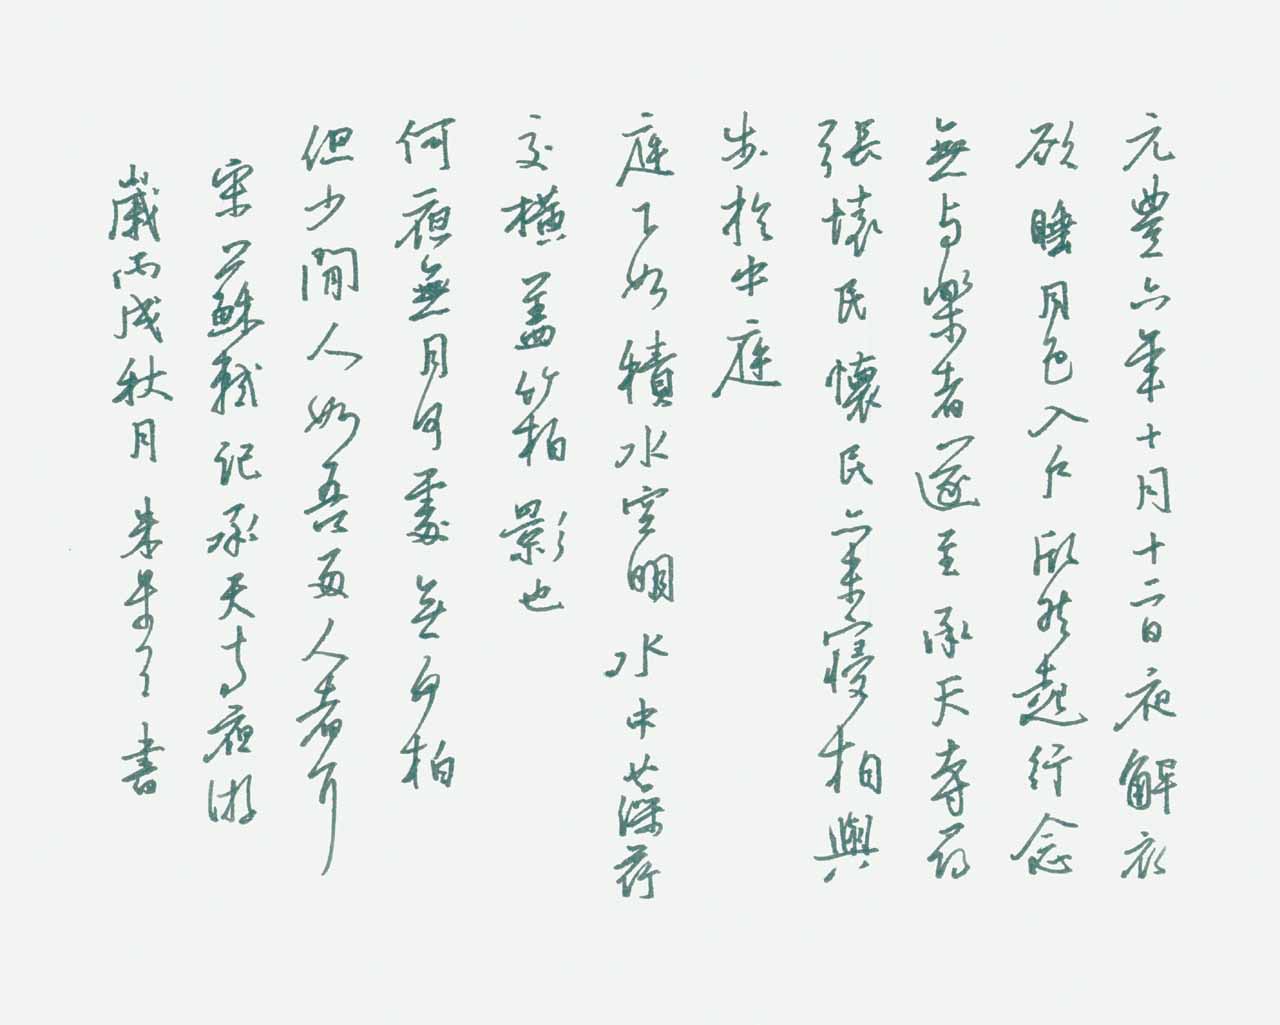 元豐六年十月十二日夜解衣
欲睡月色入户欣然起行念
無与樂者遂至承天寺尋
張懷民懷民亦未寢相與
步於中庭
庭下如積水空明水中藻荇
交橫盖竹柏影也
何夜無月何處無竹柏
但少閒人如吾兩人者耳
宋蘇軾記承天寺夜游
歲丙戌秋月朱書